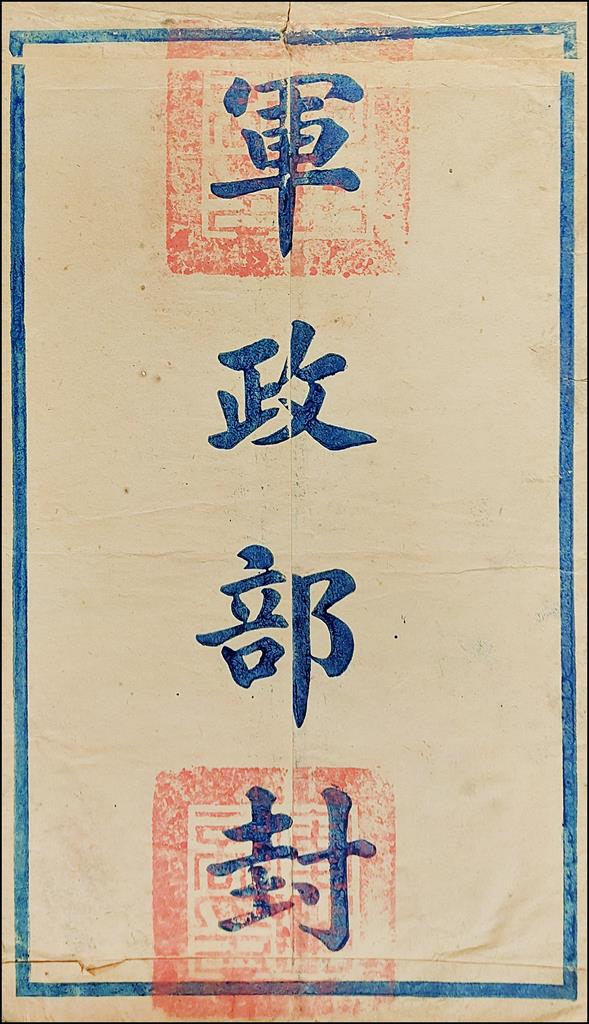 軍政部封